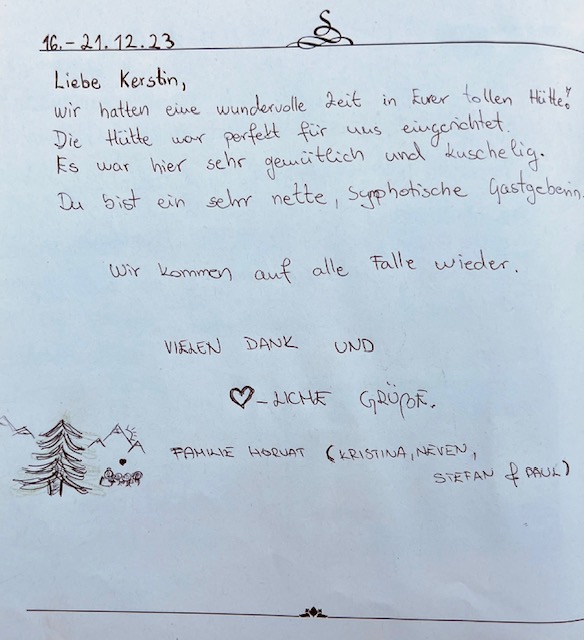 16.-21.12.23
Liebe Kerstin,
wir hatten eine wundervolle Zeit in Eurer tollen Hütte!
Die Hütte war perfekt für uns eingerichtet.
Es war hier sehr gemütlich und kuschelig.
Du bist ein sehr nette, symphotische Gastgeberin.
Wir kommen auf alle Fälle wieder.
VIELEN DANK UND
♡-LICHE GRÜßE.
FAMILIE HORVAT (KRISTINA, NEVEN,
STEFAN & PAUL)